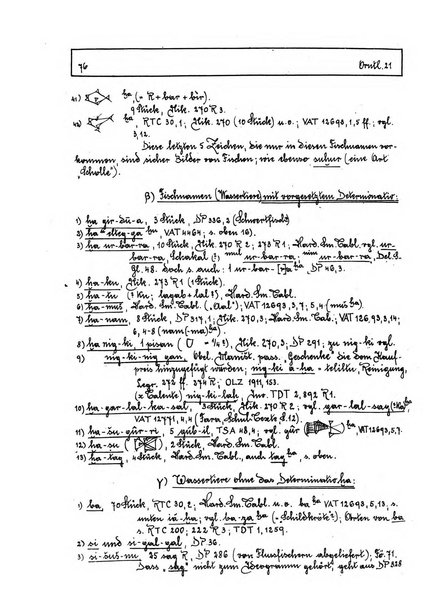 76 Orntl. 21
41) ha (= R + bar + bir).
9 Stück, Nik. 270 R 3.
42) ha, RTC 30,1; Nik. 270 (10 Stück) u.o.; VAT 12693,1,5 ff; vgl.
3,12.
Diese letzten 5 Zeichen, die nur in diesen Fischnamen vor-
kommen, sind sicher Bilder von Fischen; wie ebenso suhur (eine Art
„Scholle").
β) Fischnamen (Wassertiere) mit vorgesetztem Determinativ:
1) ha gir-du-a, 3 Stück, DP 336,2 (Schwertfisch)
2) ha, VAT 4464; s. oben 16).
3) ha ur-bar-ra, 10 Stück, Nik. 270 R 2; 273 R 1; Hard. Sm. Tabl. vgl. ur-
bar-ra, Schakal (?) ur-bar-ra ur-bar-ra, Del. S.
Gl. 48. Doch s. auch: 1 ur-bar-, DP 46,3.
4) ha-ku, Nik. 273 R 1 (1 Stück).
5) ha-tu (? Ku; lagab + lal?), Hard. Sm. Tabl.
6) ha-muš, Hard. Sm. Tabl. („Aal"); VAT 12693,3,7; 5,4 (muš ha)
7) ha-nam, 8 Stück, DP 317,4; Nik. 270,3; Hard. Sm. Tabl., VAT 12693,3,14;
6,4-8 (nam(-ma) ha).
8) ha nig-ki, 1 pisan, Nik. 270,3; DP 291; zu nig-ki vgl.
9) nig-ki-nig gan, Obel. Maništ. pass. „Geschenke die dem Kauf-
preis hinzugefügt wurden; nig-ki a-ha = teliltu, Reinigung,
Legr. 273 ff. 274 R; OLZ 1911,153.
(2 Talente) nig-ki-lah, Inv. TDT 2, 892 R 1.
10) ha-gar-lal-ka-sal, 3 Stück, Nik. 270 R 2; vgl. gar-lal-sag
VAT 12771,4,4 (Fara, Schul-Texte S. 12).
11) ha-šu-gur-ru, 5 gub-il, TSA 48 R 4, vgl. gür VAT 12693,5,7.
12) ha-su, 2 Stück, Hard. Sm. Tabl.
13) ha-tag, 4 Stück, Hard. Sm. Tabl, auch tag ha, s. oben.
γ) Wassertiere ohne das Determinativ ha:
1) ba, 70 Stück, RTC 30,2; Hard. Sm. Tabl. u.o. ba ha VAT 12693,5,13; s.
unten; vgl. ba-za ha (= „Schildkröte"); Arten von ba
s. RTC 200; 222 R 3; TDT 1,1259.
2) si und si-gal-gal, DP 36.
3) si-suš-mu, 25 sag R, DP 286 (von Flussfischern abgeliefert), Fö. 71.
Dass „sag" nicht zum Ideogramm gehört, geht aus DP 328